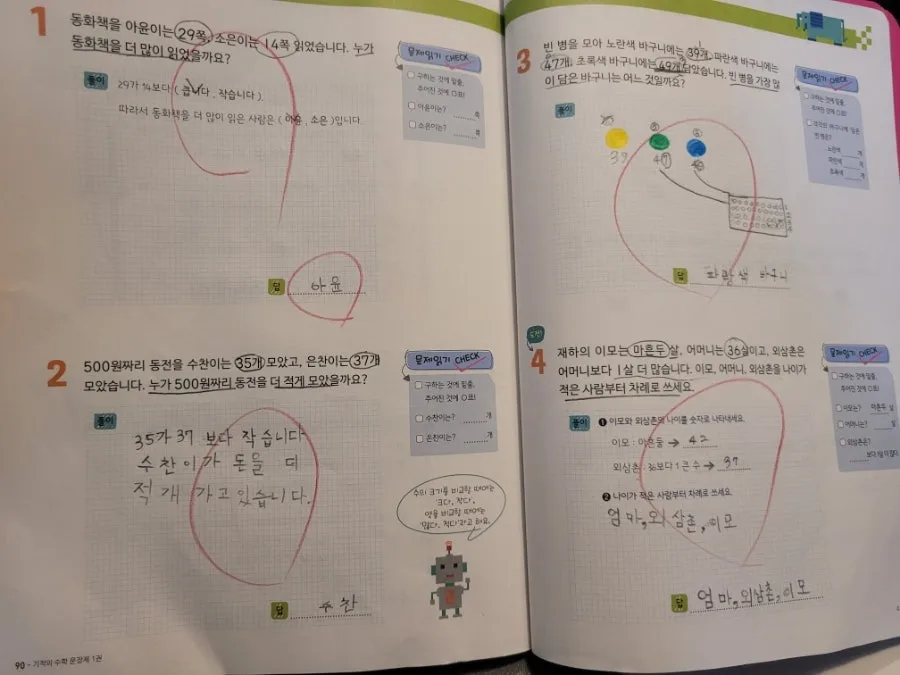 1
동화책을 아윤이는 29쪽, 소은이는 14쪽 읽었습니다. 누가
동화책을 더 많이 읽었을까요?
문제읽기 CHECK
구하는 것에 밑줄,
주어진 것에 ○표!
아윤이는? 쪽
소은이는? 쪽
풀이
29가 14보다 ( 큽니다 , 작습니다 ).
따라서 동화책을 더 많이 읽은 사람은 ( 아윤 , 소은 )입니다.
답 아윤
2
500원짜리 동전을 수찬이는 35개 모았고, 은찬이는 37개
모았습니다. 누가 500원짜리 동전을 더 적게 모았을까요?
문제읽기 CHECK
구하는 것에 밑줄,
주어진 것에 ○표!
수찬이는? 개
은찬이는? 개
풀이
35가 37 보다 작습니다
수찬이가 돈을 더
적개 가고있습니다.
수의 크기를 비교할 때에는
'크다, 작다',
양을 비교할 때에는
'많다, 적다'라고 해요.
답 수찬
90 - 기적의 수학 문장제 1권
3
빈 병을 모아 노란색 바구니에는 39개, 파란색 바구니에는
47개, 초록색 바구니에는 49개 담았습니다. 빈 병을 가장 많
이 담은 바구니는 어느 것일까요?
문제읽기 CHECK
구하는 것에 밑줄,
주어진 것에 ○표!
각각의 바구니에 담은
빈 병은?
노란색 개
파란색 개
초록색 개
풀이
답 파랑색 바구니
도전!
4
재하의 이모는 마흔두 살, 어머니는 36살이고, 외삼촌은
어머니보다 1살 더 많습니다. 이모, 어머니, 외삼촌을 나이가
적은 사람부터 차례로 쓰세요.
문제읽기 CHECK
구하는 것에 밑줄,
주어진 것에 ○표!
이모는? 마흔두 살
어머니는? 살
외삼촌은?
보다 1살 더 많다.
풀이
❶ 이모와 외삼촌의 나이를 숫자로 나타내세요.
이모 : 마흔둘 → 42
외삼촌 : 36보다 1 큰 수 → 37
❷ 나이가 적은 사람부터 차례로 쓰세요.
엄마, 외삼촌, 이모
답 엄마, 외삼촌, 이모